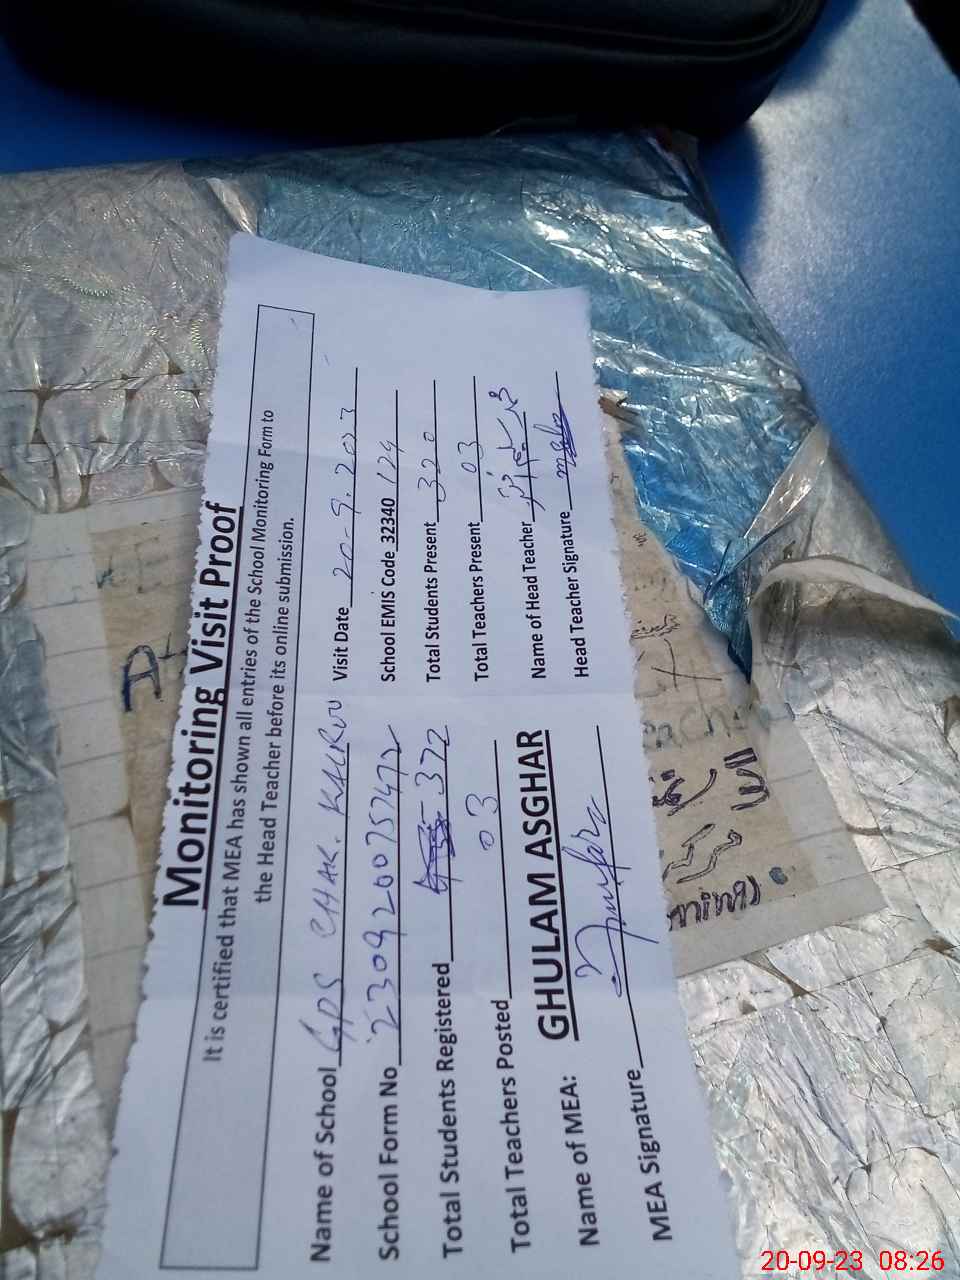 Monitoring Visit Proof
It is certified that MEA has shown all entries of the School Monitoring Form to
the Head Teacher before its online submission.
Name of School GPS CHAK. KALROO Visit Date 20-9.2023
School Form No 2309200757472 School EMIS Code 32340 124
Total Students Registered 372 Total Students Present 320
Total Teachers Posted 03 Total Teachers Present 03
Name of MEA: GHULAM ASGHAR Name of Head Teacher
MEA Signature Head Teacher Signature
20-09-23 08:26